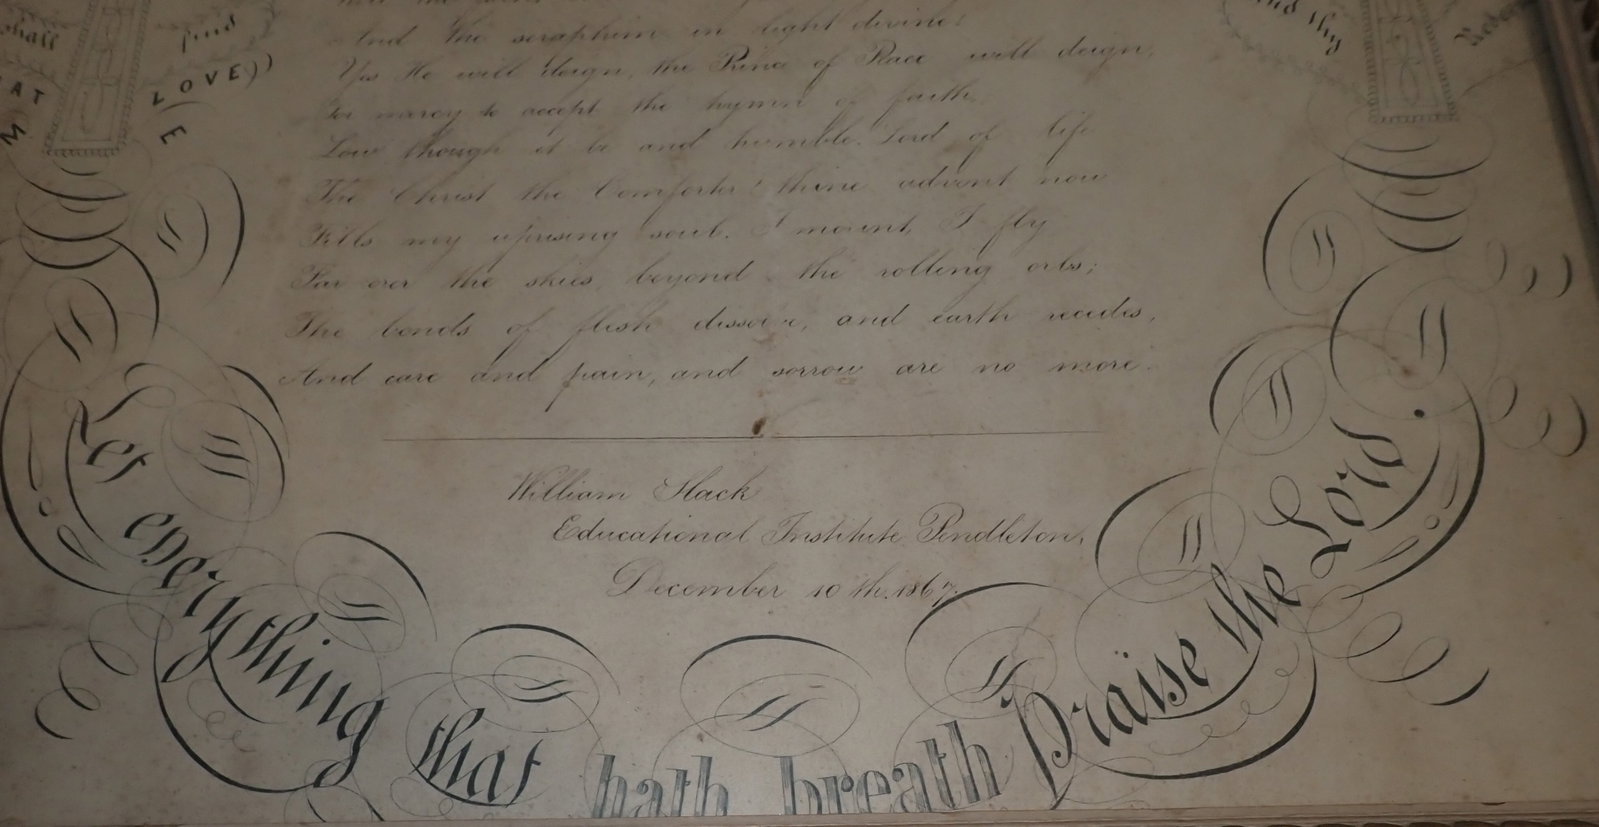 shall
find
nd thy
AT
LOVE
M
E
And the seraphim in light divine!
Yes He will deign, the Prince of Peace will deign,
In mercy to accept the hymn of faith,
Low though it be and humble. Lord of life
The Christ the Comforter! thine advent now
Fills my uprising soul. I mount, I fly
Far over the skies, beyond the rolling orbs;
The bonds of flesh dissolve, and earth recedes,
And care and pain, and sorrow are no more.
William Slack
Educational Institute Pendleton,
December 10th. 1867.
Let everything that hath breath praise the Lord.